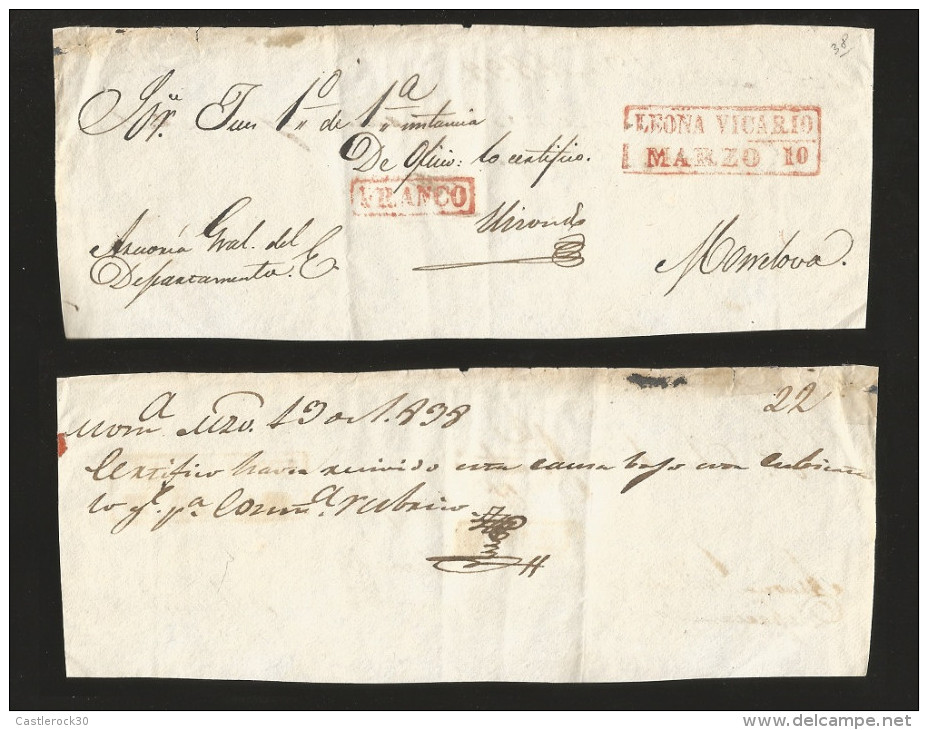 38
Sor. Juez 1º de 1ª instancia
De Oficio: lo certifico.
LEONA VICARIO
MARZO 10
FRANCO
Gral. del
Departamento.
Monclova.
22
Monª Mzo. 13 de 1.838
Certifico haver recivido esta causa bajo esta cubier
ta y pª
rubrico
Castlerock30
www.delcampe.net